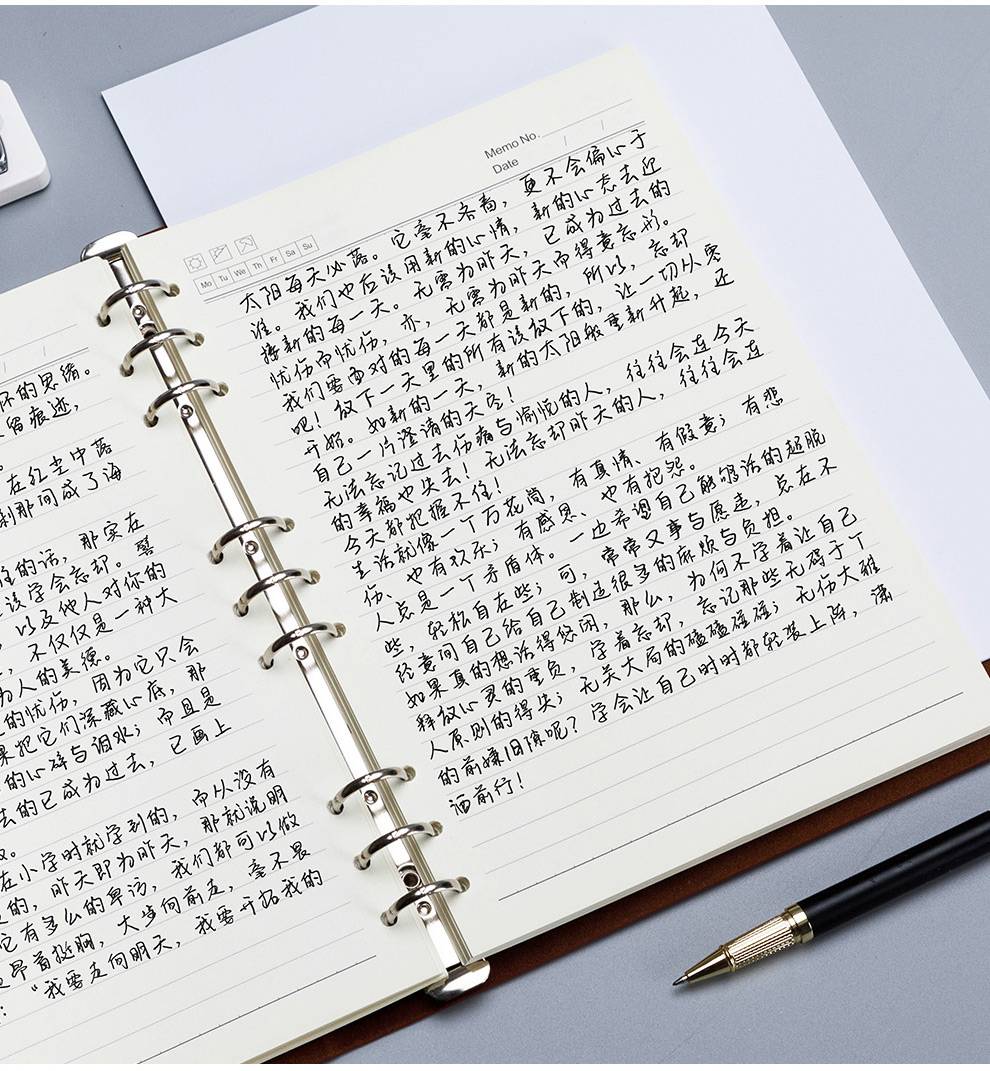 怀的思绪。
留痕迹,
在红尘中落
刹那间成了海
性的话,那实在
该学会忘却。譬
以及他人对你的
,不仅仅是一种大
为人的美德。
的忧伤,因为它只会
果把它们深藏心底,那
的心碎与泪水;而且是
去的已成为过去,已画上
在小学时就学到的,而从没有
的,昨天即为昨天,那就说明
它有多么的卑,我们都可以做
昂首挺胸,大步向前走,毫不畏
:“我要走向明天,我要开拓我的
Memo No.
Date / /
Mo Tu We Th Fr Sa Su
太阳每天必落。它毫不吝啬,更不会偏心于
谁。我们也后该用新的心情,新的心态去迎
接新的每一天。无需为昨天,已成为过去的
忧伤而忧伤,亦,无需为昨天而得意忘形。
我们要面对的每一天都是新的,所以,忘却
吧!放下一天里的所有该放下的,让一切从零
开始。如新的一天,新的太阳般重新升起,还
自己一片澄清的天空!
无法忘记过去伤痛与愉悦的人,往往会连今天
的幸福也失去!无法忘却昨天的人,往往会连
今天都把握不住!
生活就像一个万花筒,有真情、有假意;有悲
伤、也有欢乐;有感恩、也有抱怨。
人总是一个矛盾体。一边希望自己能够活的超脱
些,轻松自在些;可,常常又事与愿违,总在不
经意间自己给自己制造很多的麻烦与负担。
如果真的想活得悠闲,那么,为何不学着让自己
释放心灵的重负,学着忘却,忘记那些无碍于个
人原则的得失;无关大局的磕磕碰碰;无伤大雅
的前嫌旧隙呢?学会让自己时时都轻装上阵,潇
洒前行!